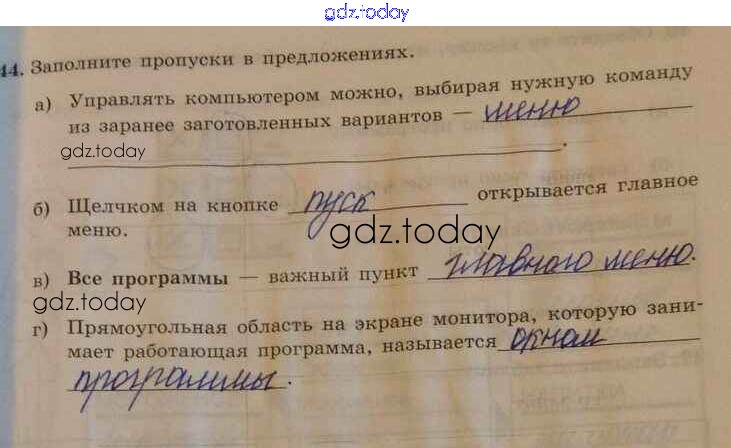 gdz.today
44. Заполните пропуски в предложениях.
а) Управлять компьютером можно, выбирая нужную команду
из заранее заготовленных вариантов — меню
gdz.today
.
б) Щелчком на кнопке пуск открывается главное
меню.
gdz.today
в) Все программы — важный пункт главного меню.
gdz.today
г) Прямоугольная область на экране монитора, которую зани-
мает работающая программа, называется окном
программы.